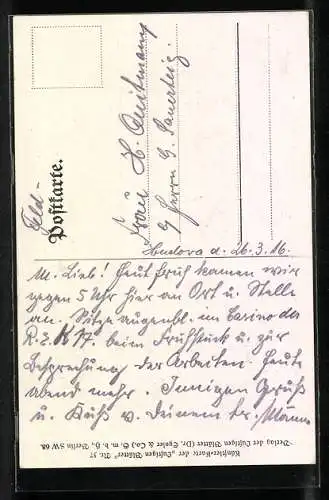 Feld-
Postkarte.
Frau H. Quitmann
Herrn G. Sauerteig.
d. 26.3.16.
M. Lieb! Heut früh kamen wir
gegen 5 Uhr hier an Ort u. Stelle
an. Sitze augenbl. im Casino der
beim Frühstück u. zur
Besprechung der Arbeiten. Heute
abend mehr. Innigen Gruß
u. Kuß v. Deinem tr. Männe
Künstler-Karte der „Lustigen Blätter" Nr. 57
Verlag der Lustigen Blätter (Dr. Eysler & Co.) G. m. b. H., Berlin SW 68.